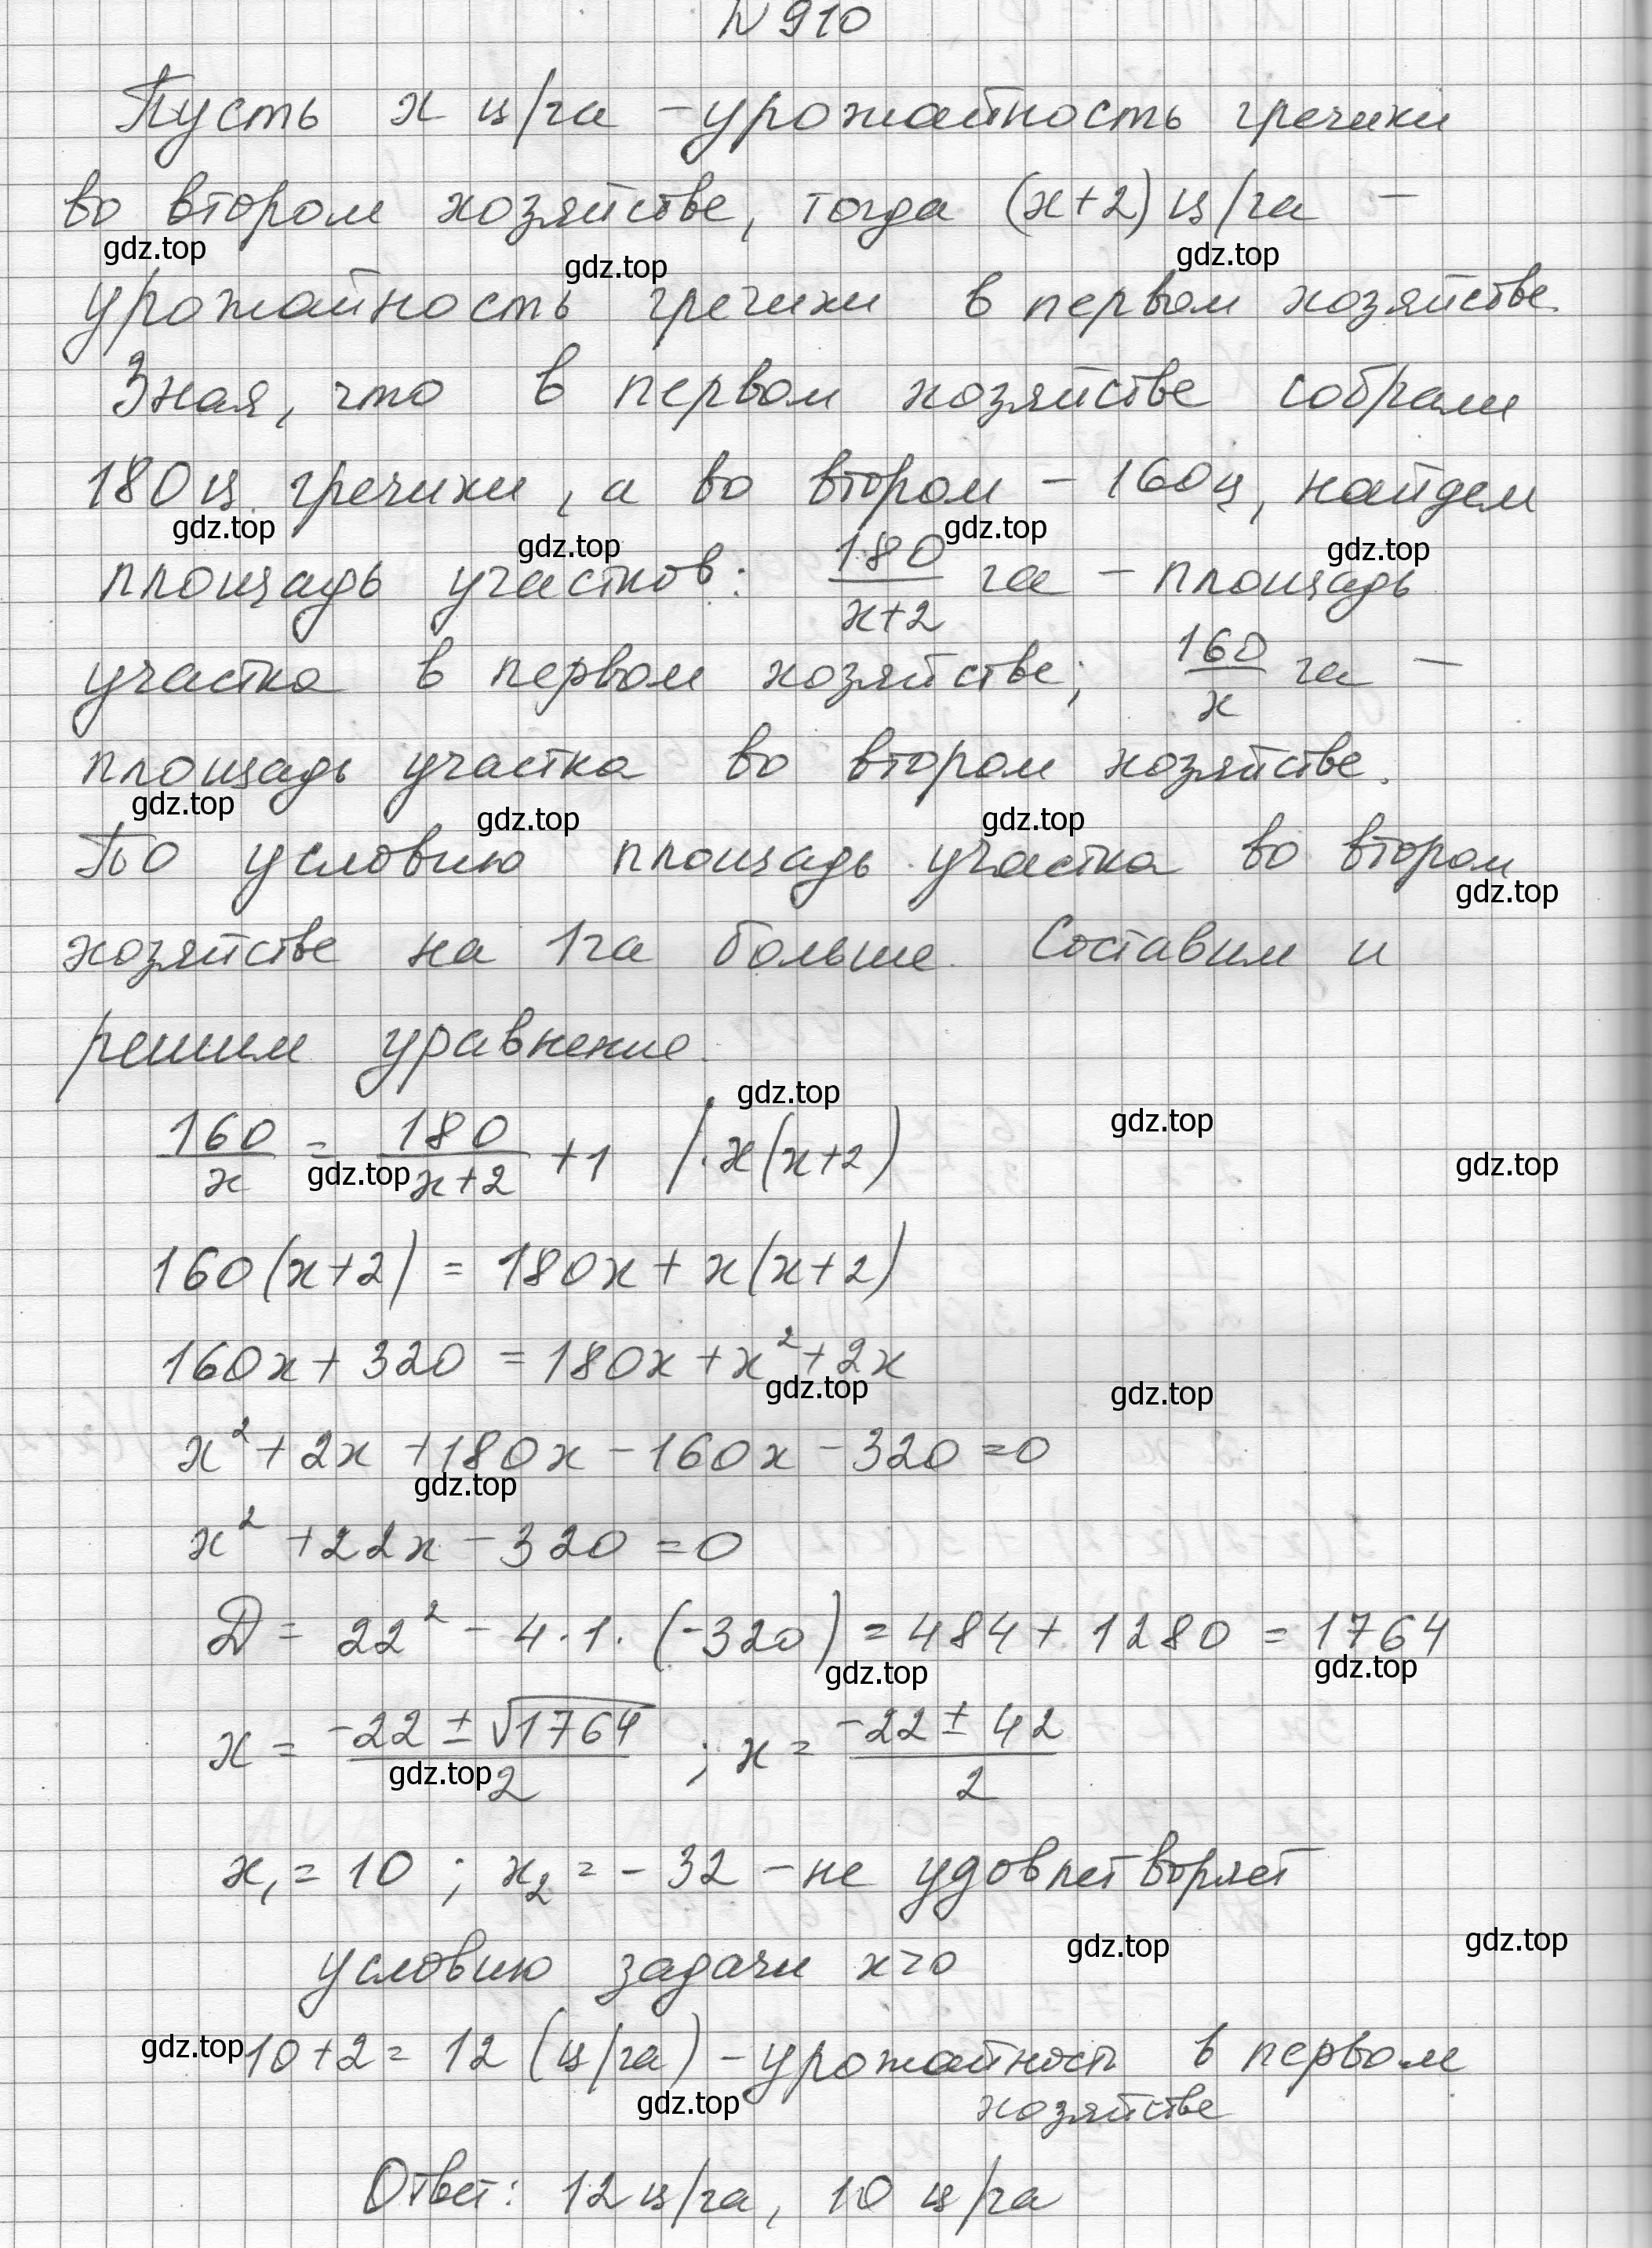 N 910
Пусть x ц/га – урожайность гречихи
во втором хозяйстве, тогда (x+2) ц/га –
gdz.top gdz.top gdz.top
урожайность гречихи в первом хозяйстве.
Зная, что в первом хозяйстве собрали
180 ц гречихи, а во втором – 160 ц, найдем
gdz.top gdz.top gdz.top gdz.top
площадь участков: 180/(x+2) га – площадь
участка в первом хозяйстве; 160/x га –
площадь участка во втором хозяйстве.
gdz.top gdz.top gdz.top
По условию площадь участка во втором
gdz.top
хозяйстве на 1 га больше. Составим и
решим уравнение.
gdz.top gdz.top
160/x = 180/(x+2) + 1 /· x(x+2)
gdz.top gdz.top
160(x+2) = 180x + x(x+2)
160x + 320 = 180x + x² + 2x
gdz.top gdz.top
x² + 2x + 180x – 160x – 320 = 0
gdz.top
x² + 22x – 320 = 0
D = 22² – 4 · 1 · (-320) = 484 + 1280 = 1764
gdz.top gdz.top
x = (-22 ± √1764)/2 ; x = (-22 ± 42)/2
gdz.top
x₁ = 10 ; x₂ = – 32 – не удовлетворяет
gdz.top gdz.top
условию задачи x>0
gdz.top
10 + 2 = 12 (ц/га) – урожайность в первом
gdz.top
хозяйстве
Ответ: 12 ц/га, 10 ц/га